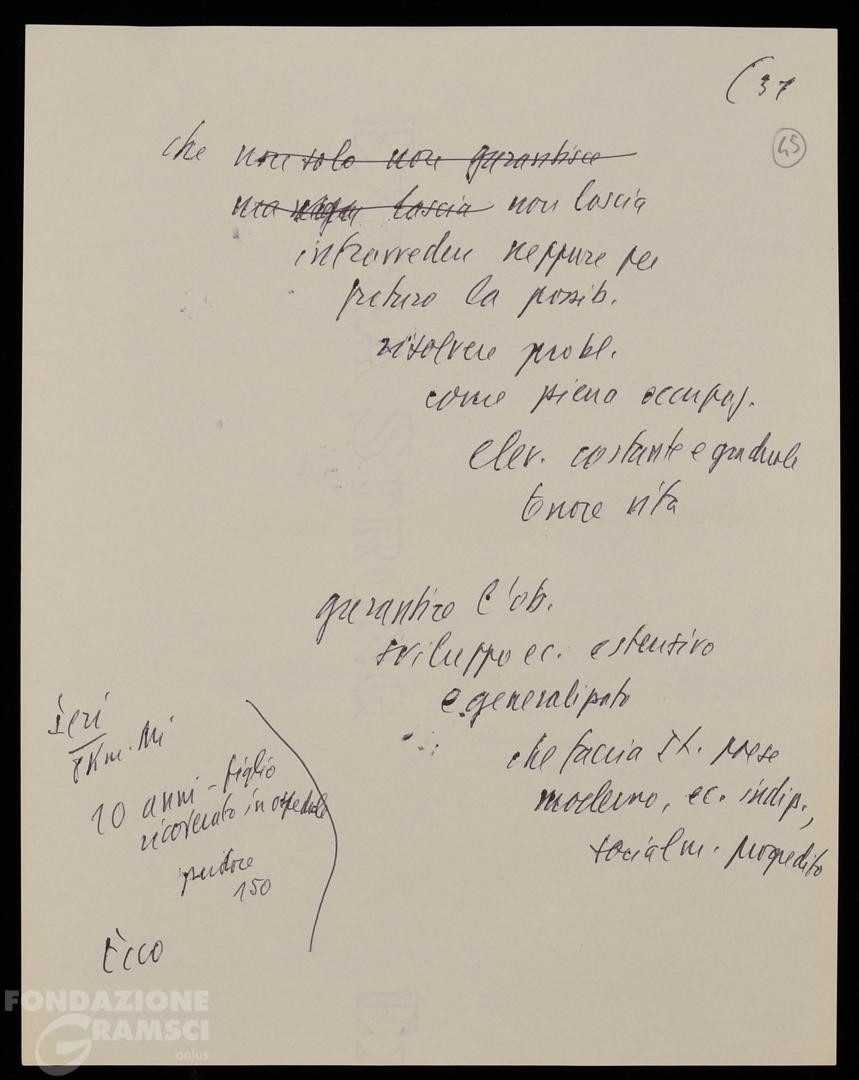 (37
45
che ~~non solo non garantisce~~
~~ma lascia~~ non lascia
intravvedere neppure per
futuro la possib.
risolvere probl.
come piena occupaz.
elev. costante e graduale
tenore vita
garantire l'ob.
sviluppo ec. estensivo
e generalizzato
che faccia It. paese
moderno, ec. indip.,
socialm. progredito
Ieri
8 Km. Mi
10 anni - figlio
ricoverato in ospedale
150
Ecco
FONDAZIONE
GRAMSCI
onlus